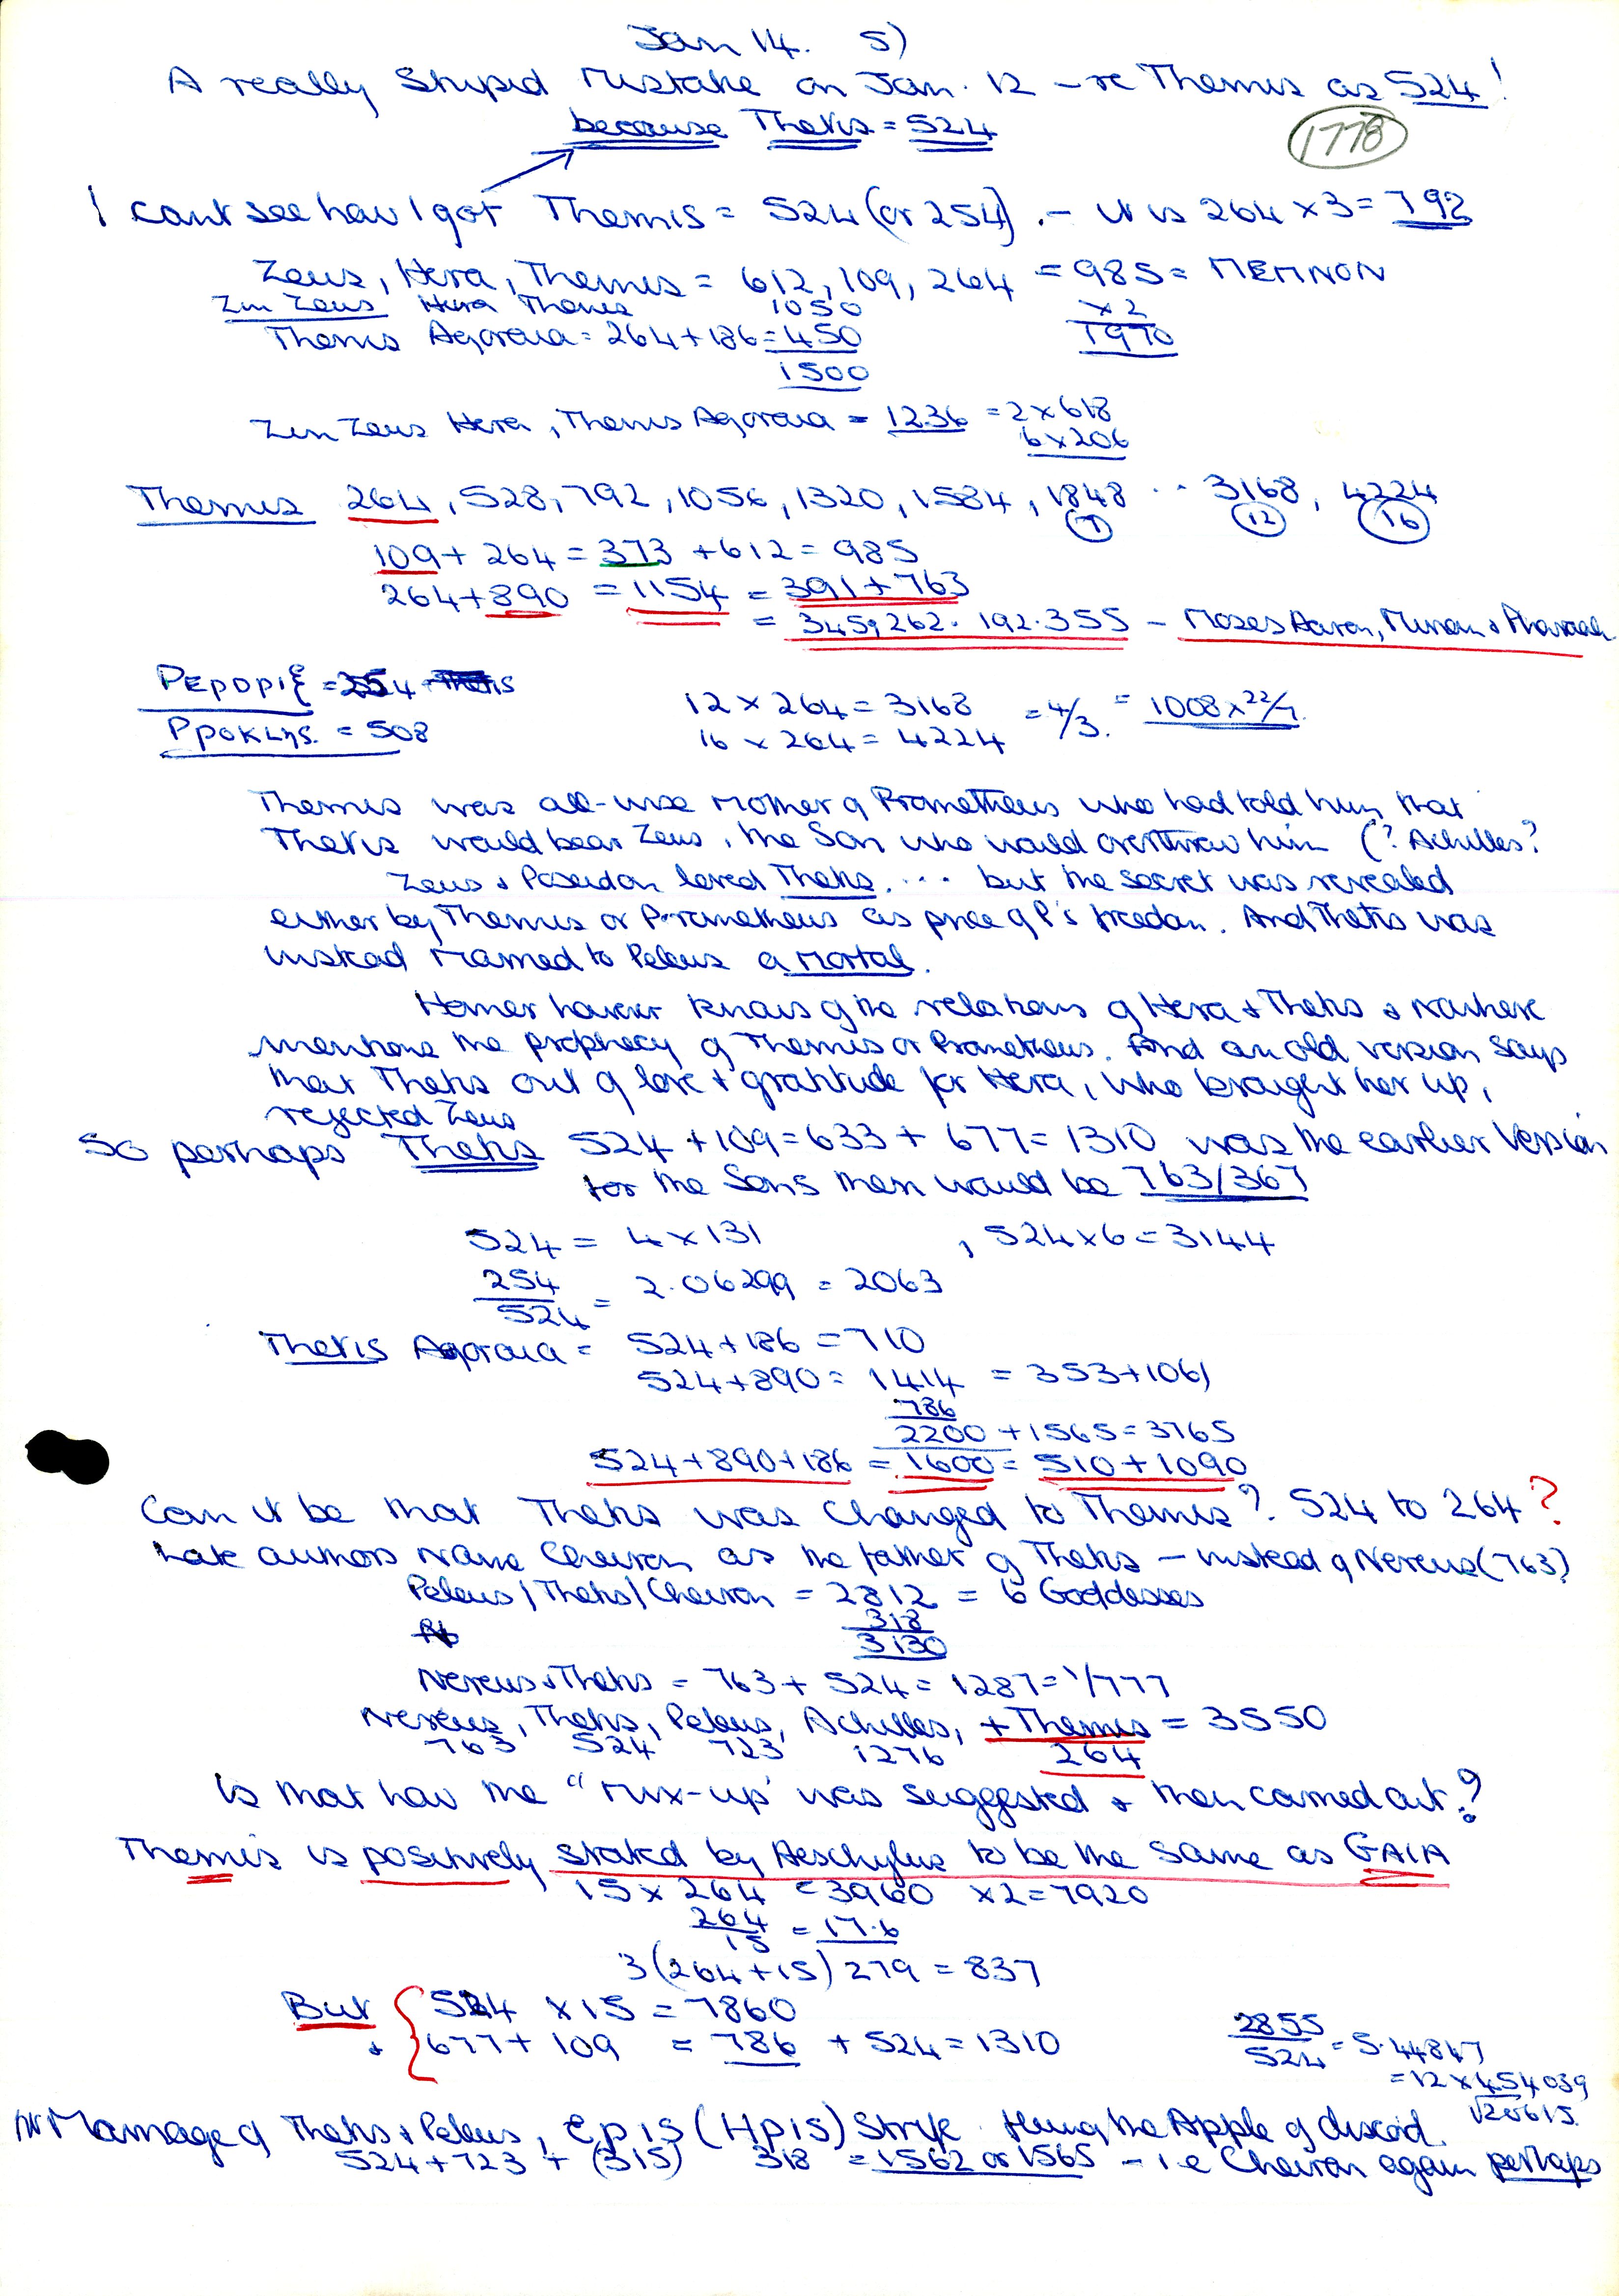 Jan 14. 5)
A really Stupid Mistake on Jan. 12 – re Themis as 524!
because Thetis = 524
1778
I cant see how I got Themis = 524 (or 254). – it is 264 × 3 = 792
Zeus, Hera, Themis = 612, 109, 264 = 985 = MEMNON
Zin Zeus Hera Themis 1050 ×2
Themis Agoraia = 264 + 186 = 450 1970
1500
Zin Zeus Hera, Themis Agoraia = 1236 = 2 × 618
6 × 206
Themis 264, 528, 792, 1056, 1320, 1584, 1848 .. 3168, 4224
7 12 16
109 + 264 = 373 + 612 = 985
264 + 890 = 1154 = 391 + 763
= 345, 262. 192. 355 – Moses Aaron, Miriam & Pharoah
= 254
= 508
12 × 264 = 3168 = 4/3. = 1008 × 22/7.
16 × 264 = 4224
Themis was all-wise Mother of Prometheus who had told him that
Thetis would bear Zeus, the Son who would overthrow him (? Achilles?
Zeus & Poseidon loved Thetis.... but the secret was revealed
either by Themis or Prometheus as price of P's freedom. And Thetis was
instead married to Peleus a mortal.
Homer however knows of the relations of Hera & Thetis & nowhere
mentions the prophecy of Themis or Prometheus. And an old version says
that Thetis out of love & gratitude for Hera, who brought her up,
rejected Zeus
So perhaps Thetis 524 + 109 = 633 + 677 = 1310 was the earlier version
for the Sons then would be 763/367
524 = 4 × 131 , 524 × 6 = 3144
254/524 = 2.06299 = 2063
Thetis Agoraia = 524 + 186 = 710
524 + 890 = 1414 = 353 + 1061
786
2200 + 1565 = 3765
524 + 890 + 186 = 1600 = 510 + 1090
Can it be that Thetis was changed to Themis? 524 to 264?
Late authors name Cheiron as the father of Thetis – instead of Nereus (763)
Peleus / Thetis / Cheiron = 2812 = 6 Goddesses
318
3130
Nereus & Thetis = 763 + 524 = 1287 = 1/777
Nereus, Thetis, Peleus, Achilles, + Themis = 3550
763 524 723 1276 264
Is that how the "mix-up" was suggested & then carried out?
Themis is positively stated by Aeschylus to be the same as GAIA
15 × 264 = 3960 × 2 = 7920
264/15 = 17.6
3 (264 + 15) 279 = 837
But 524 × 15 = 7860
& 677 + 109 = 786 + 524 = 1310
2855/524 = 5.44847
= 12 × 454039
√20615
Marriage of Thetis & Peleus, Epis (Hpis) Strife flung the Apple of discord.
524 + 723 + (315) 318 = 1562 or 1565 – i.e Cheiron again perhaps